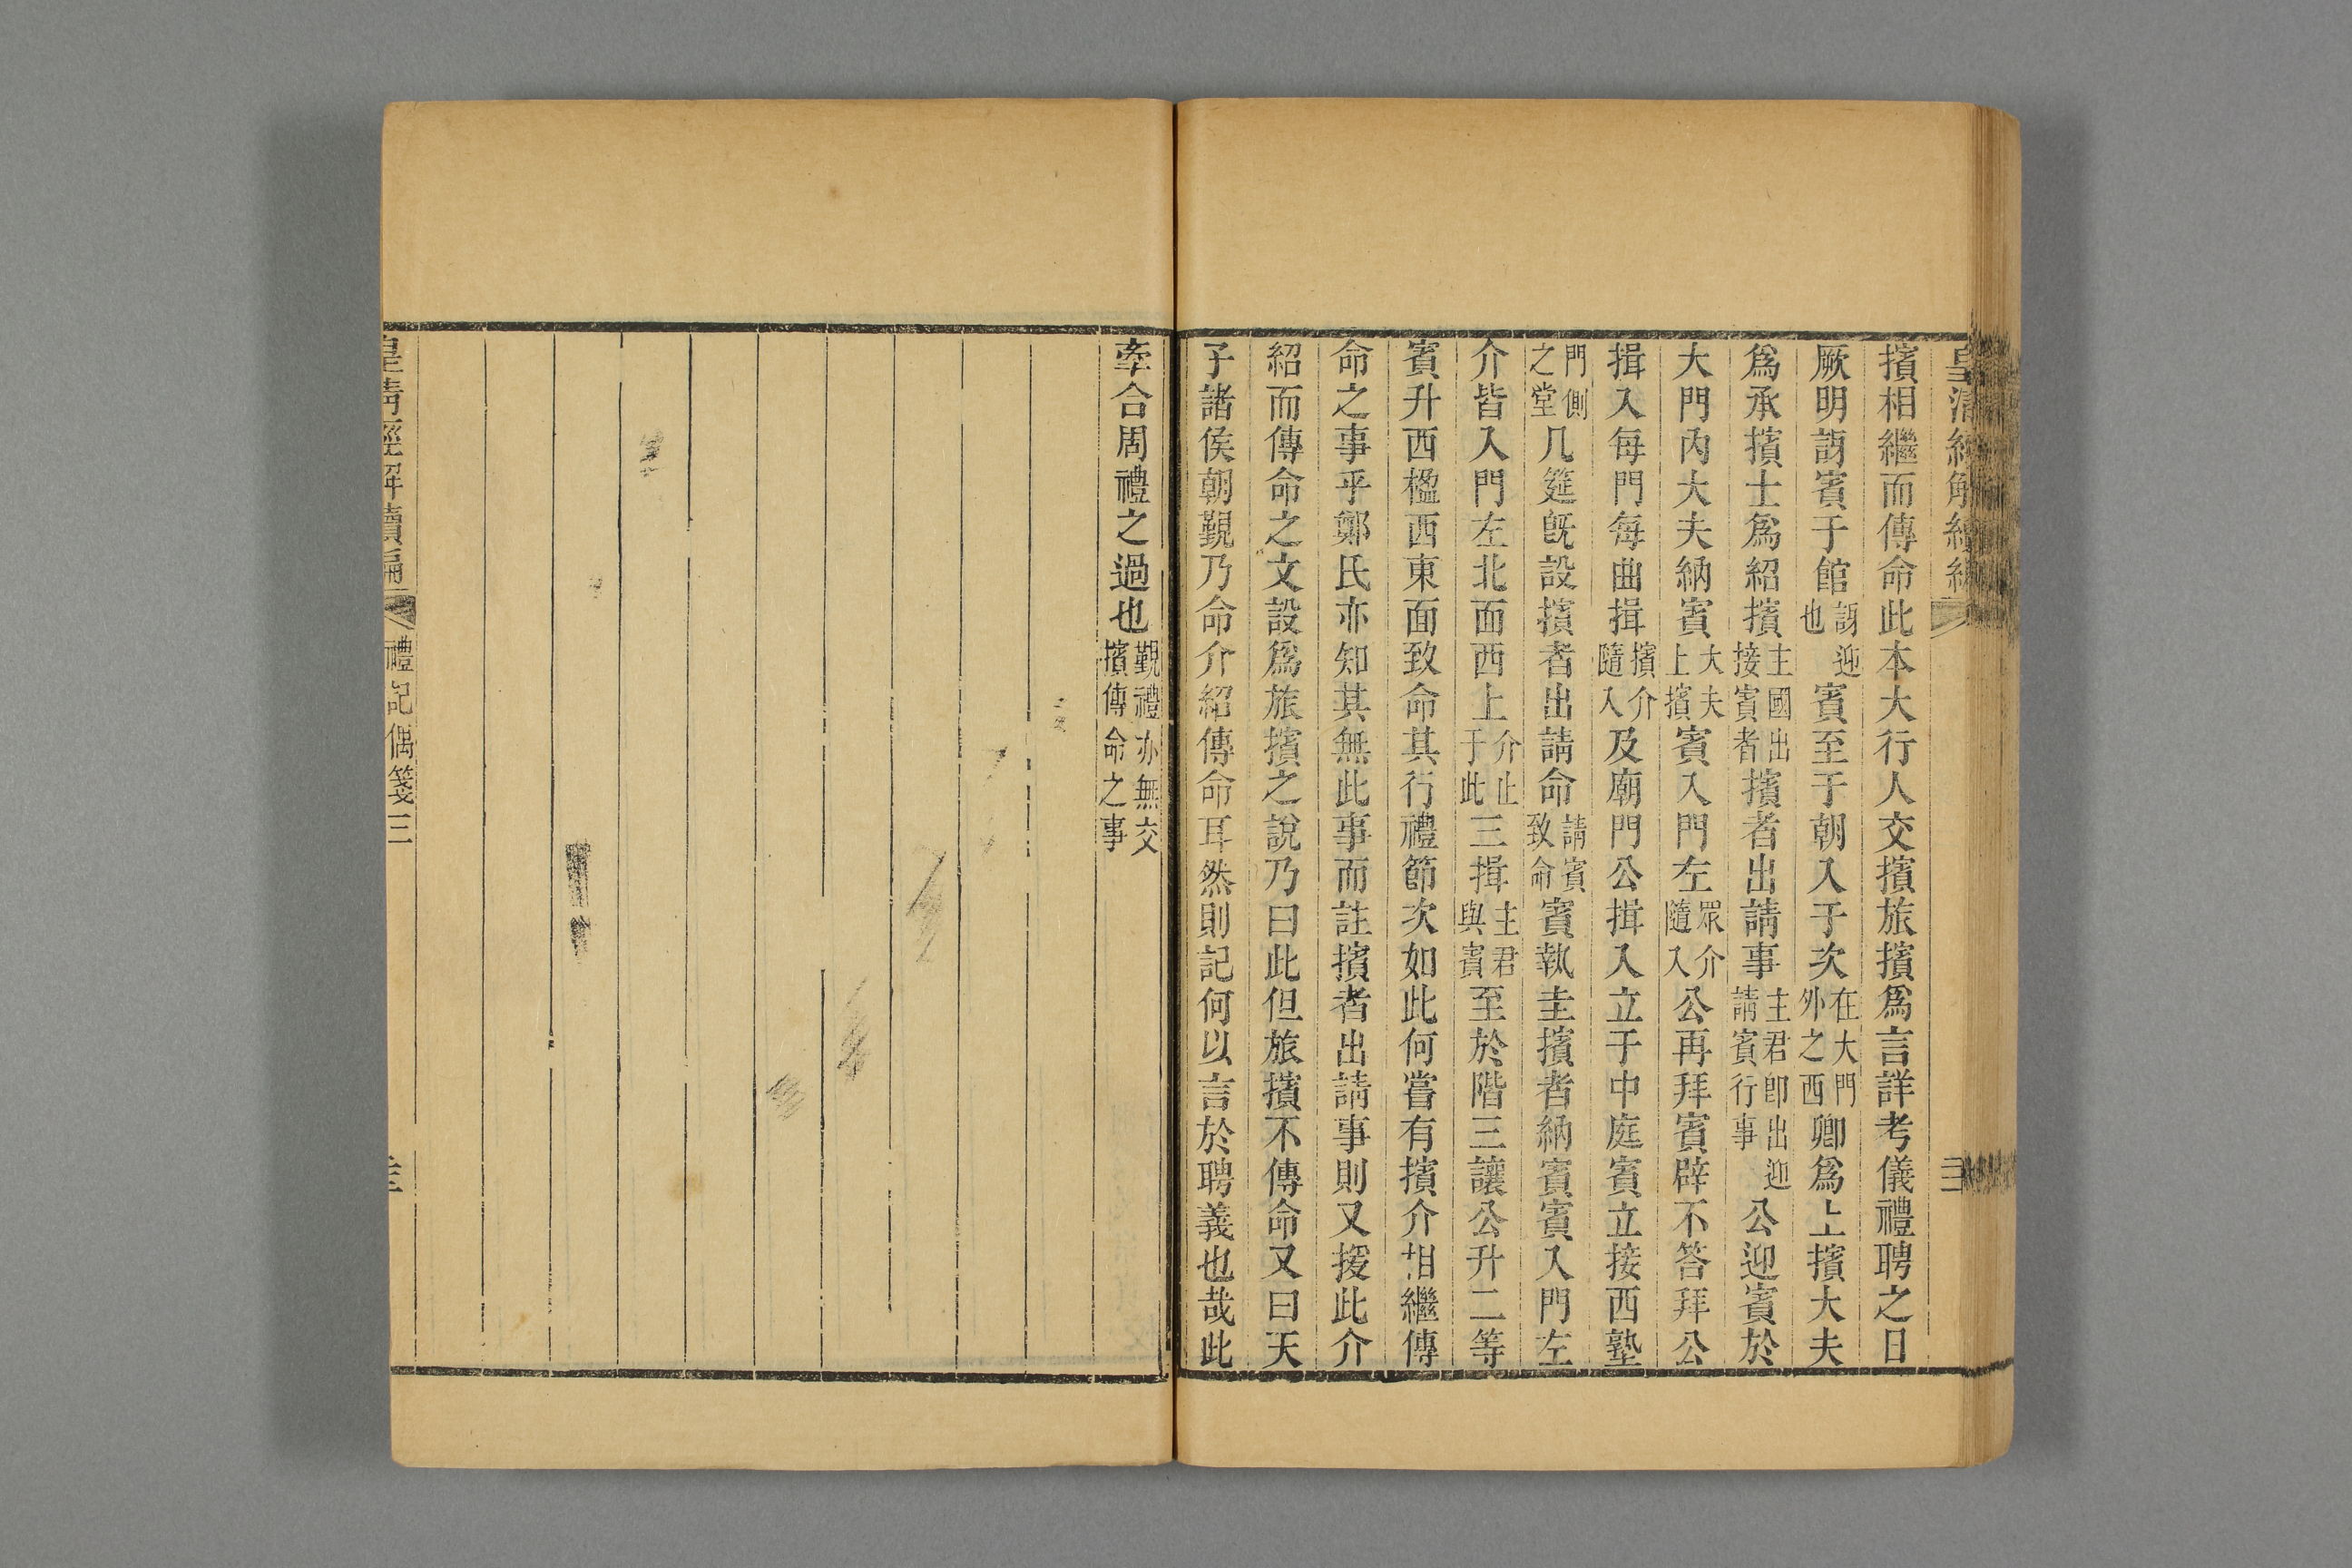 皇清經解續編
擯相繼而傳命此本大行人交擯旅擯爲言詳考儀禮聘之日
厥明訝賓于館訝迎也賓至于朝入于次在大門外之西卿爲上擯大夫
爲承擯士爲紹擯主國出接賓者擯者出請事主君卽出迎請賓行事公迎賓於
大門內大夫納賓大夫上擯賓入門左眾介隨入公再拜賓辟不答拜公
揖入每門每曲揖擯介隨入及廟門公揖入立于中庭賓立接西塾
門側之堂几筵旣設擯者出請命請賓致命賓執圭擯者納賓賓入門左
介皆入門左北面西上介止于此三揖主君與賓至於階三讓公升二等
賓升西楹西東面致命其行禮節次如此何嘗有擯介相繼傳
命之事乎鄭氏亦知其無此事而註擯者出請事則又援此介
紹而傳命之文設爲旅擯之說乃曰此但旅擯不傳命又曰天
子諸侯朝覲乃命介紹傳命耳然則記何以言於聘義也哉此
牽合周禮之過也覲禮亦無交擯傳命之事
皇清經解續編 禮記偶箋三